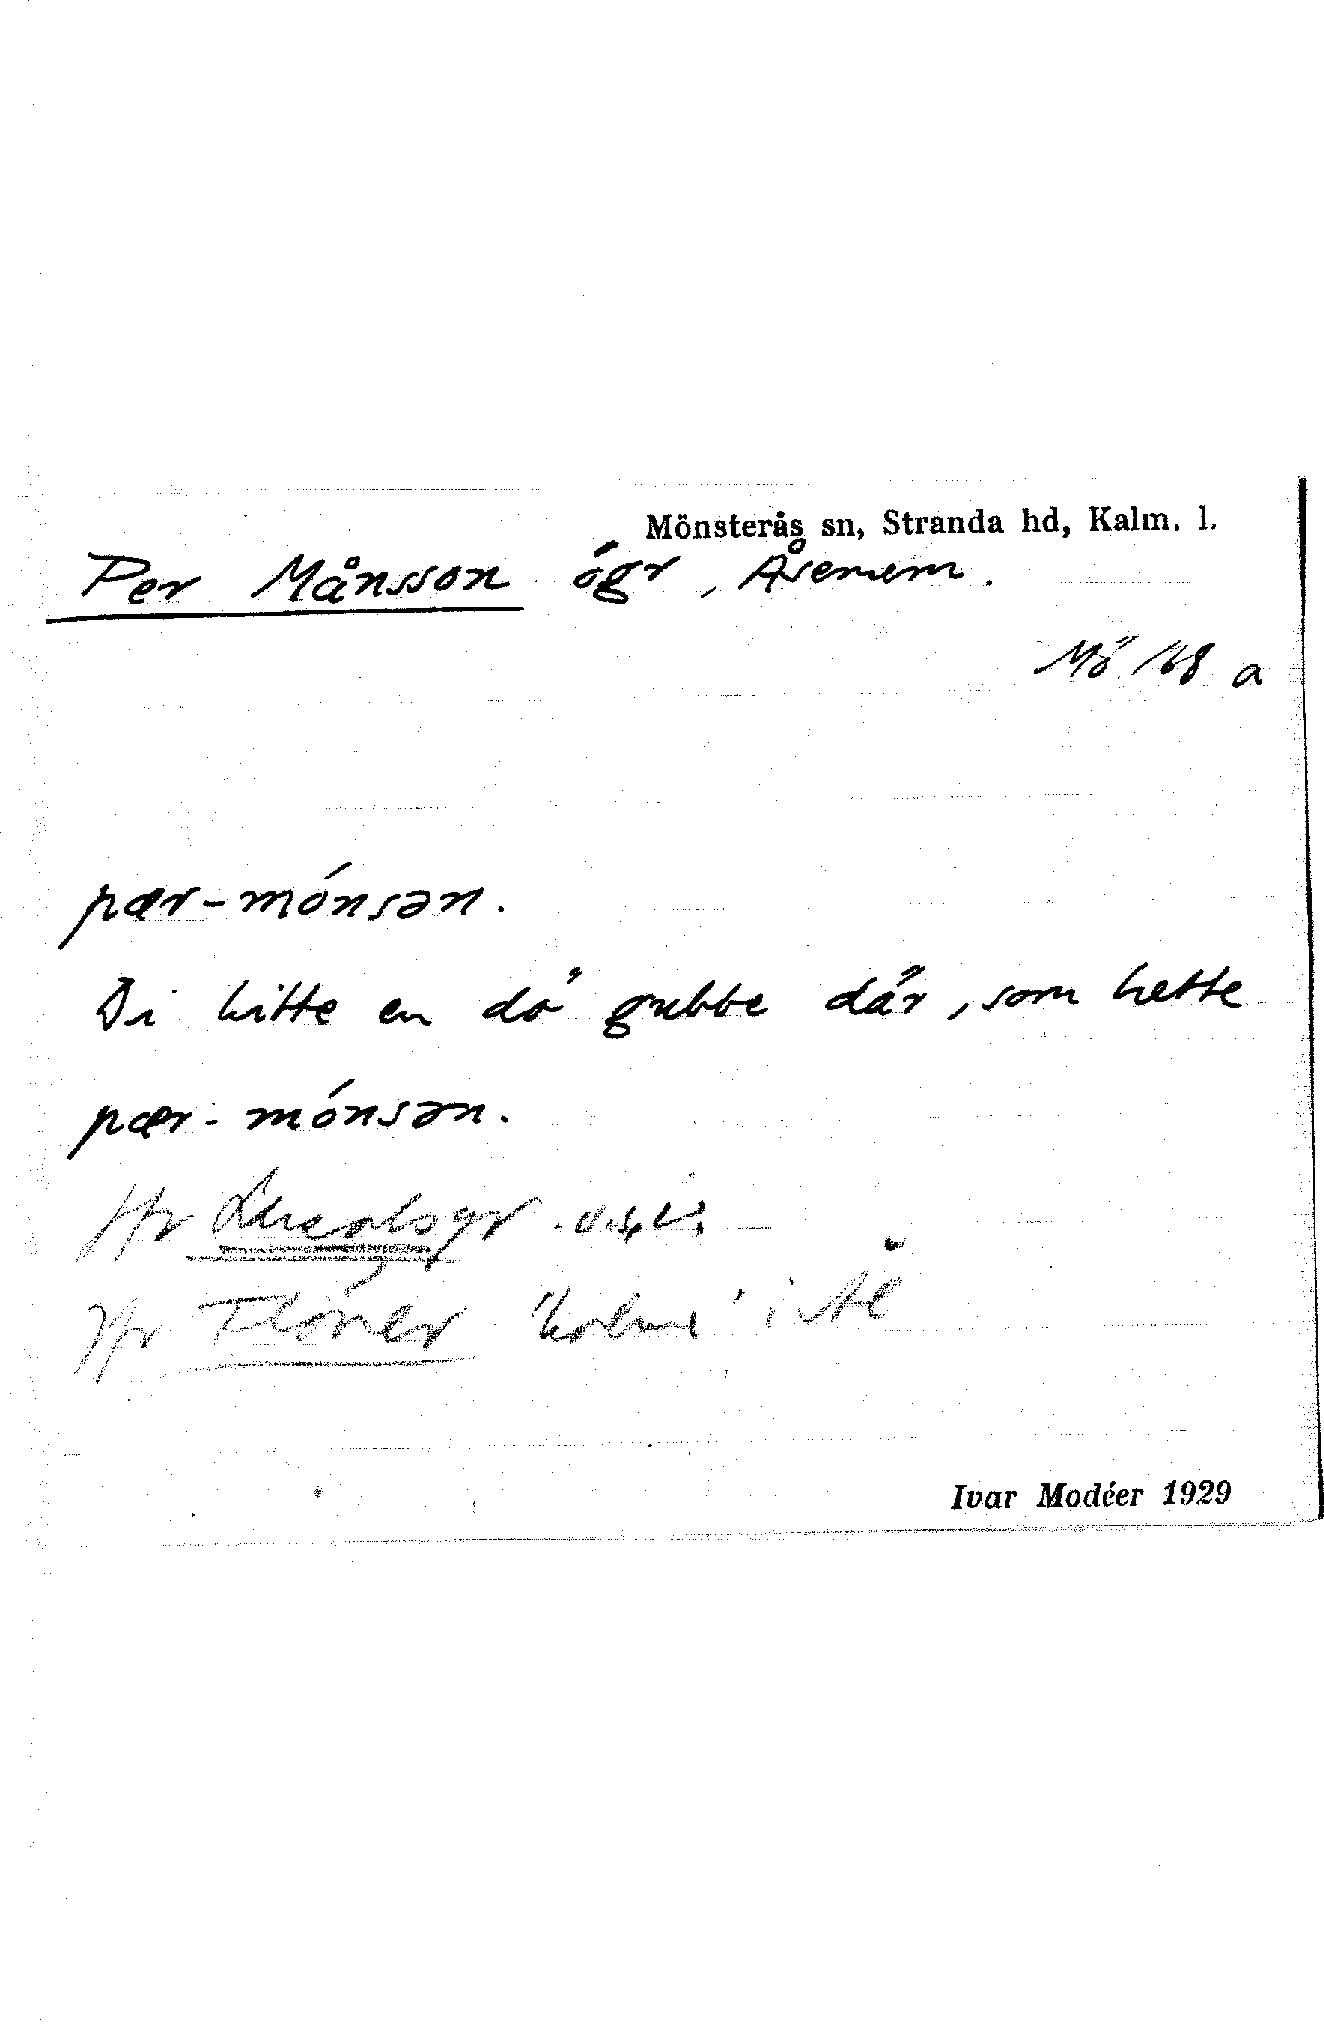 Mönsterås sn, Stranda hd, Kalm. l.
Per Månsson ögr, Åsemem.
Mö 168 a
pær-mónsən.
Di hitte en dö gubbe där, som hette
pær-mónsən.
Jfr
Jfr Flöner 'holme' i
Ivar Modéer 1929